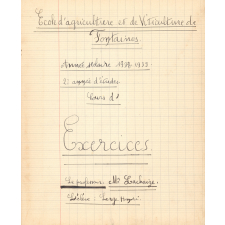 Ecole d'agriculture et de Viticulture de
Fontaines
Année scolaire 1932-1933
2e année d'études
Cours d'
Exercices
Le professeur M.
L'élève Serge